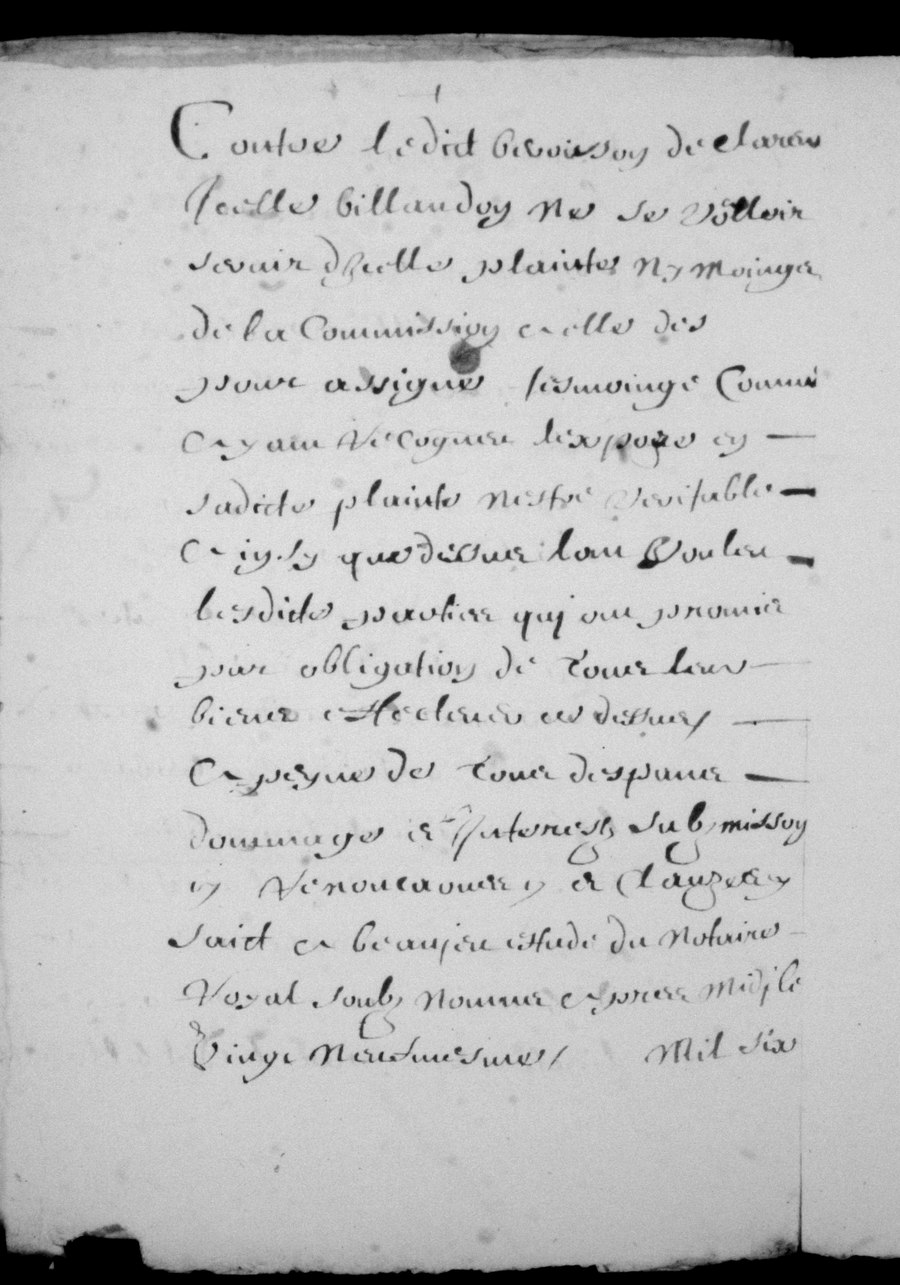 Contre ledict beroisson declaran
Icelle billaudon ne se volloir
servir dicelle plaintes ny moinge
de la Commission celle des
pour assigne tesmoinge comme
ayant recognu lexpoze en
sadicte plainte nestre veritable
ainsy que dessus lont vouleu
lesdicte parties qui ont promis
par obligation de tous leurs
biens ce dessus
a peyne de tous despans
dommage et Interestz submission
renonca et clauzes
faict a beaujeu estude du notaire
royal soubz nomme apres midj le
vingt neufuiesme mil six